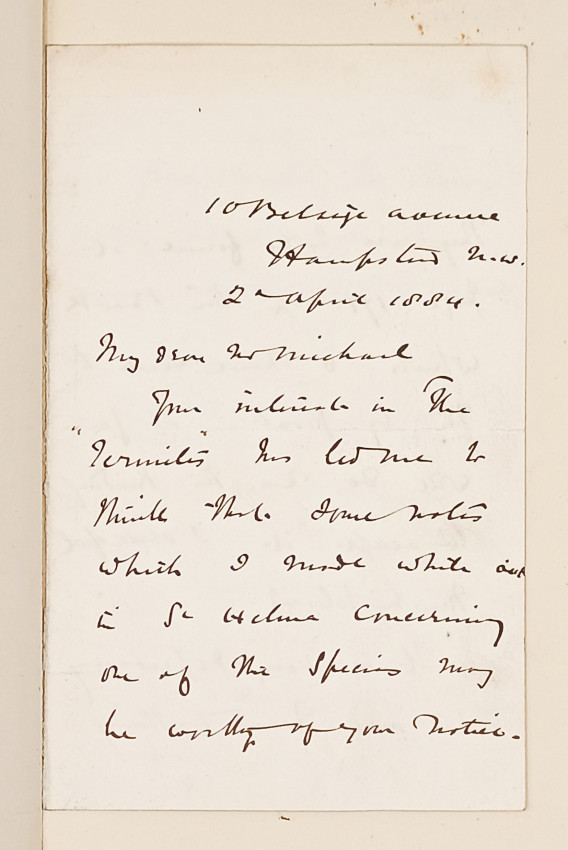 10 Belsize avenue
Hampstead N.W.
2d April 1884.
My dear Mr Michael
Your interest in The
"Termites" has led me to
think that some notes
which I made while out
in St Helena concerning
one of the Species may
be worthy of your notice.